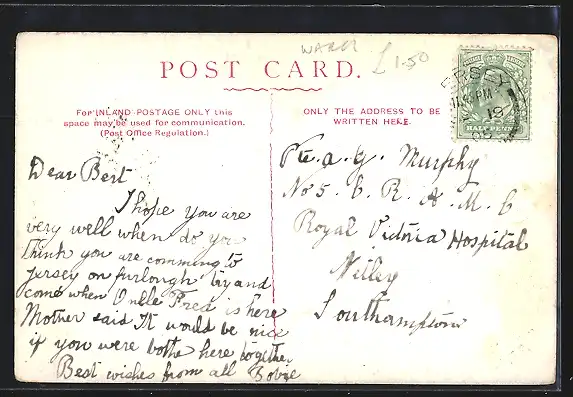 WARR £1.50
POST CARD.
JERSEY
PM
19
HALFPENNY
For INLAND POSTAGE ONLY this
space may be used for communication.
(Post Office Regulation.)
ONLY THE ADDRESS TO BE
WRITTEN HERE.
Dear Bert
I hope you are
very well when do you
think you are comming to
Jersey on furlough try and
come when Uncle Fred is here
Mother said It would be nice
if you were bothe here together
Best wishes from all
Pte. a. G. Murphy
No 5. C. R. A. M. C
Royal Victoria Hospital
Netley
Southampton